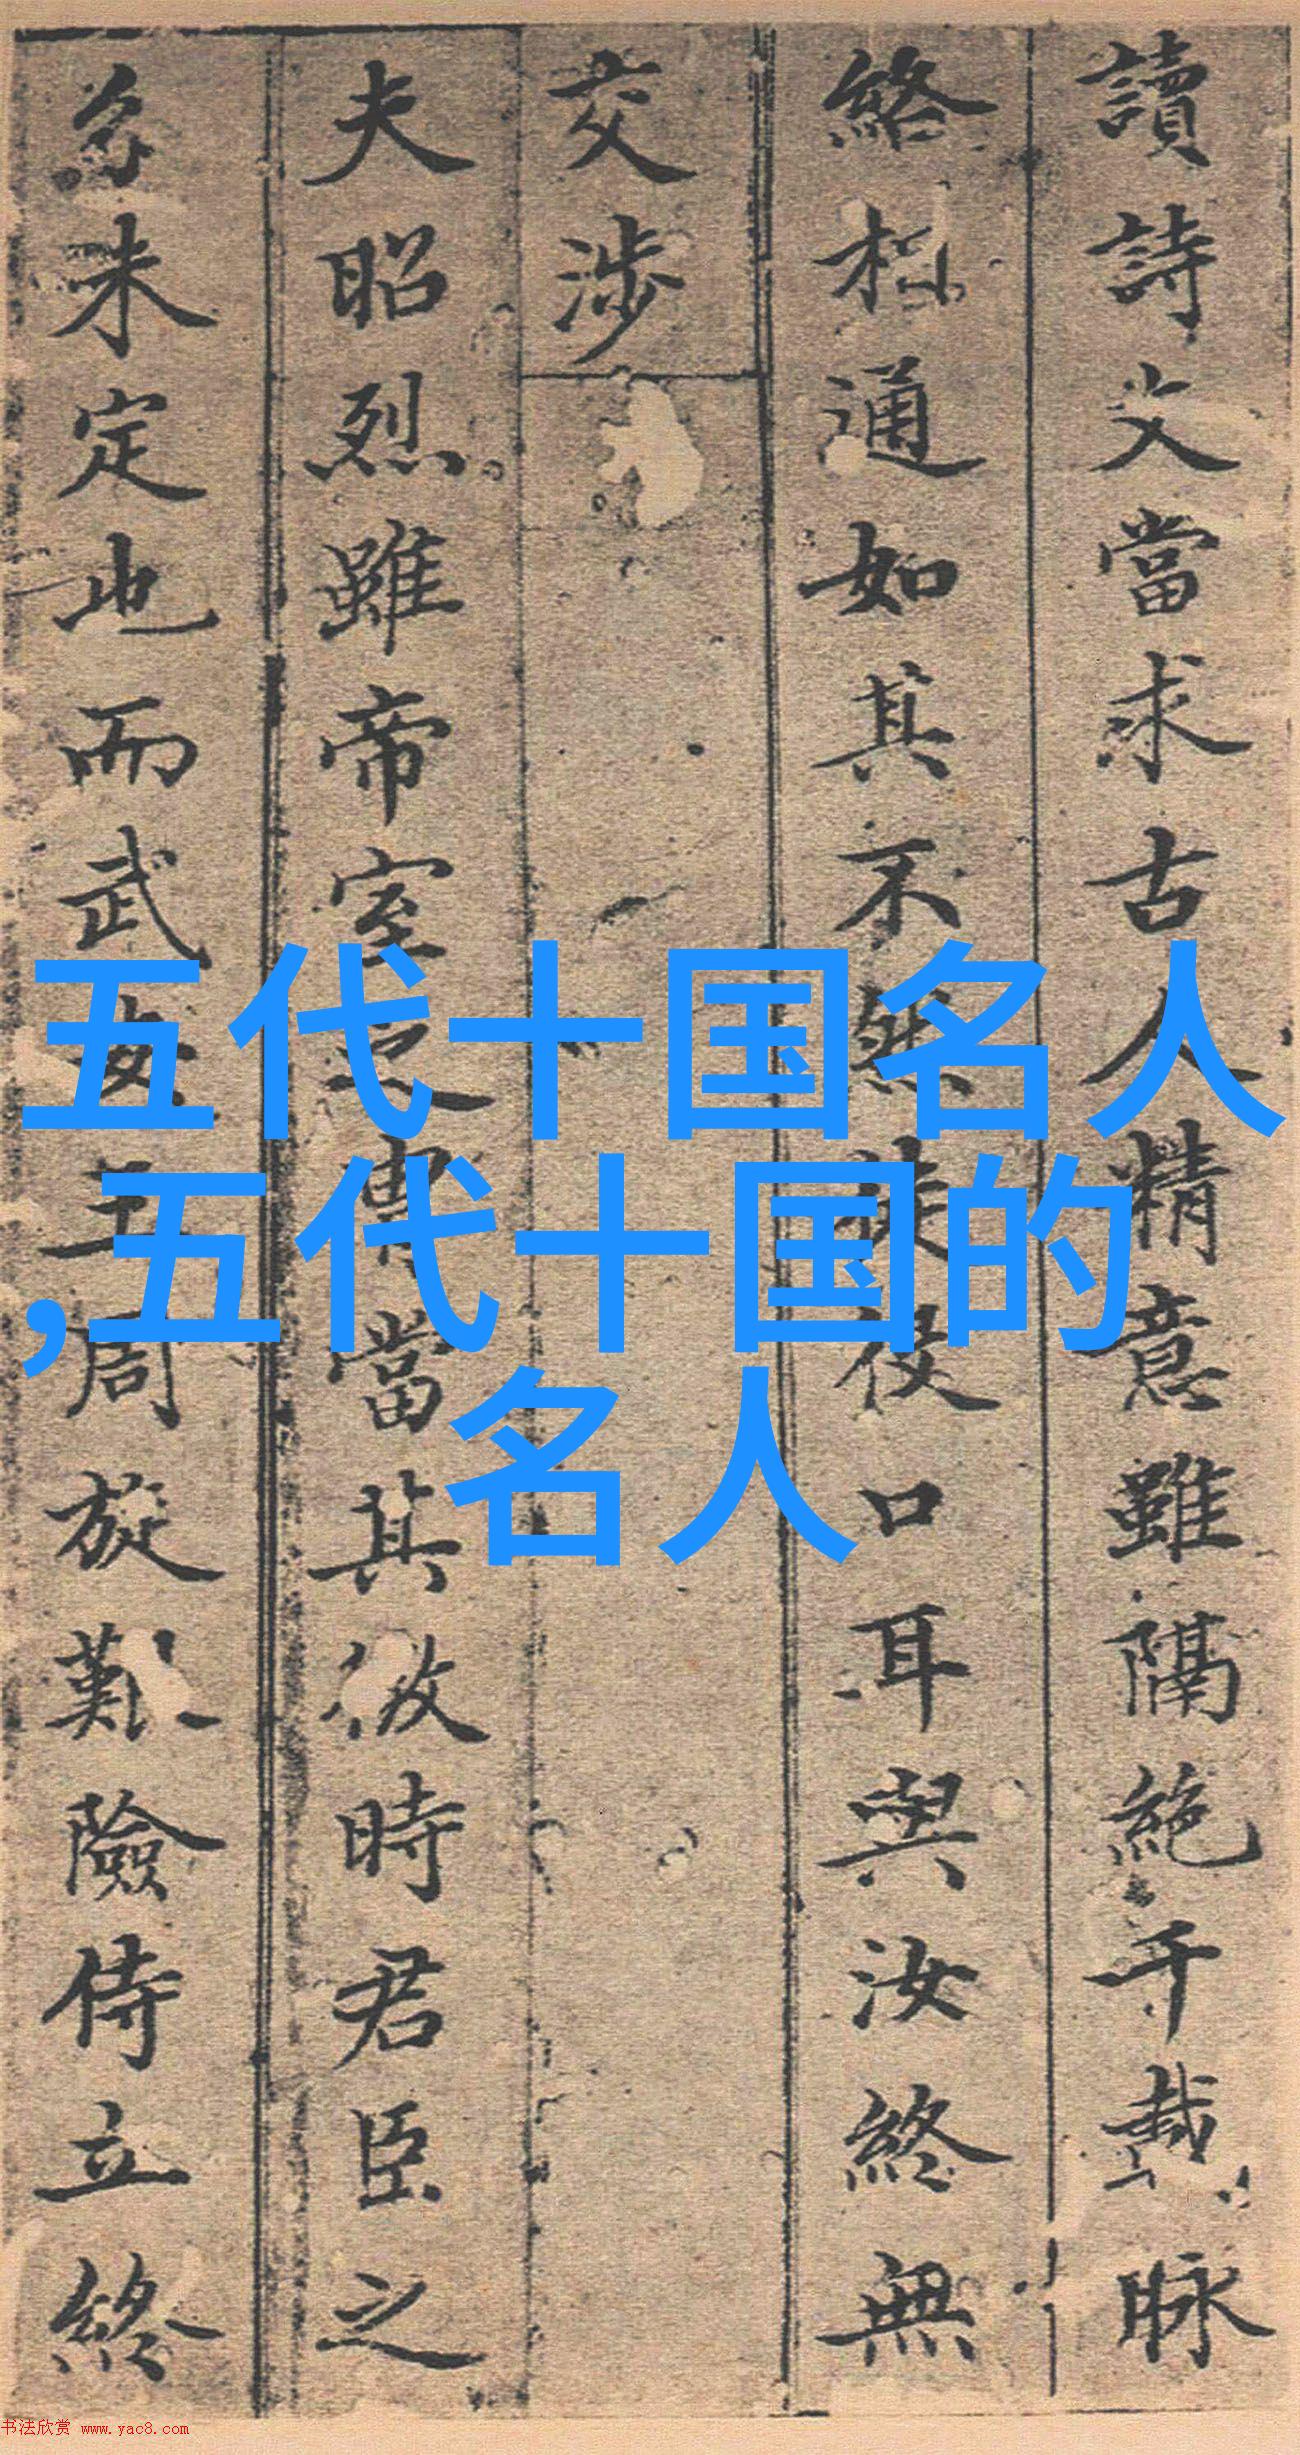 讀詩文當求古人精意雖隔絶千載脉
絡相通如其不然徒役口耳與汝終無
交涉
夫昭烈雖帝室之胄當其微時君臣之
分未定也而武安王周旋艱險侍立終
五代十国名人
,五代十国的
名人
书法欣赏 www.yac8.com